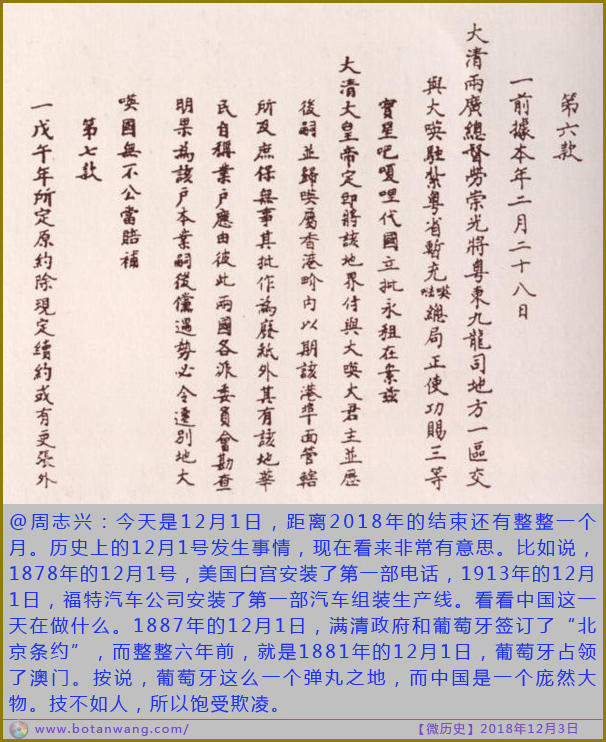 第六款
一前據本年二月二十八日
大清兩廣總督勞崇光將粵東九龍司地方一區交
與大𠸄駐紮粵省暫充𠸄𠵽總局正使功賜三等
寳星吧嗄哩代國立批永租在案茲
大清大皇帝定即將該地界付與大𠸄大君主並歷
後嗣並歸𠸄屬香港界內以期該港埠面管轄
所及庶保無事其批作為廢紙外其有該地華
民自稱業戶應由彼此兩國各派委員會勘查
明果為該戶本業嗣後儻遇勢必令遷別地大
𠸄國無不公當賠補
第七款
一戊午年所定原約除現定續約或有更張外
@周志兴：今天是12月1日，距离2018年的结束还有整整一个
月。历史上的12月1号发生事情，现在看来非常有意思。比如说，
1878年的12月1号，美国白宫安装了第一部电话，1913年的12月
1日，福特汽车公司安装了第一部汽车组装生产线。看看中国这一
天在做什么。1887年的12月1日，满清政府和葡萄牙签订了“北
京条约”，而整整六年前，就是1881年的12月1日，葡萄牙占领
了澳门。按说，葡萄牙这么一个弹丸之地，而中国是一个庞然大
物。技不如人，所以饱受欺凌。
www.botanwang.com/
【微历史】2018年12月3日